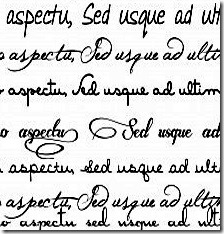 aspectu, Sed usque ad ult
o aspectu, Sed usque ad ulti
o aspectu, Sed usque ad ultim
o aspectu Sed usque ad
o aspectu, sed usque ad ultim
o aspectu, Sed usque ad ultim
o aspectu sed usque ad ultim